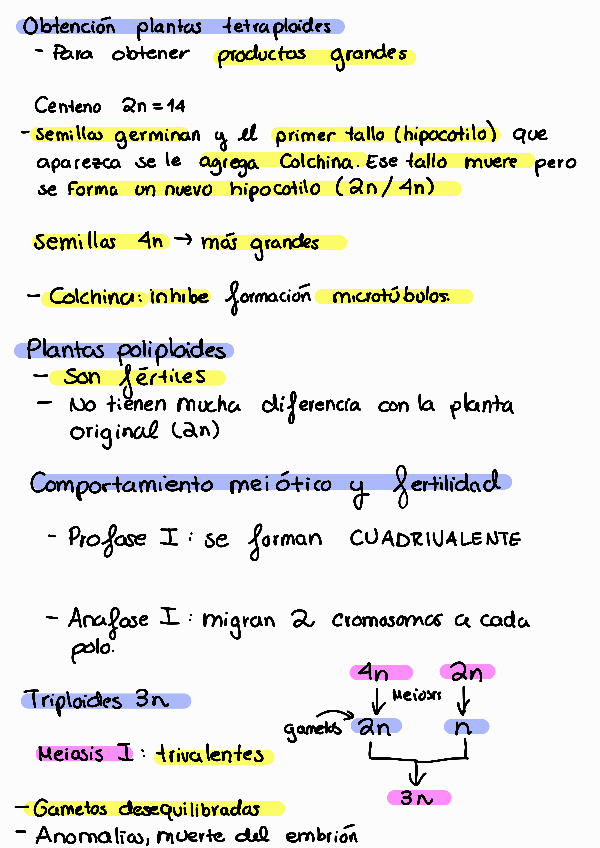 Obtención plantas tetraploides
- Para obtener productos grandes
Centeno 2n = 14
- Semillas germinan y el primer tallo (hipocotilo) que
aparezca se le agrega Colchina. Ese tallo muere pero
se forma un nuevo hipocotilo (2n/4n)
Semillas 4n → más grandes
- Colchina: inhibe formación microtúbulos.
Plantas poliploides
- Son fértiles
- No tienen mucha diferencia con la planta
original (2n)
Comportamiento meiótico y fertilidad
- Profase I: se forman CUADRIVALENTE
- Anafase I: migran 2 cromosomas a cada
polo.
4n 2n
Meiosis
Triploides 3n
gametos 2n n
Meiosis I: trivalentes
3n
- Gametos desequilibradas
- Anomalías, muerte del embrión